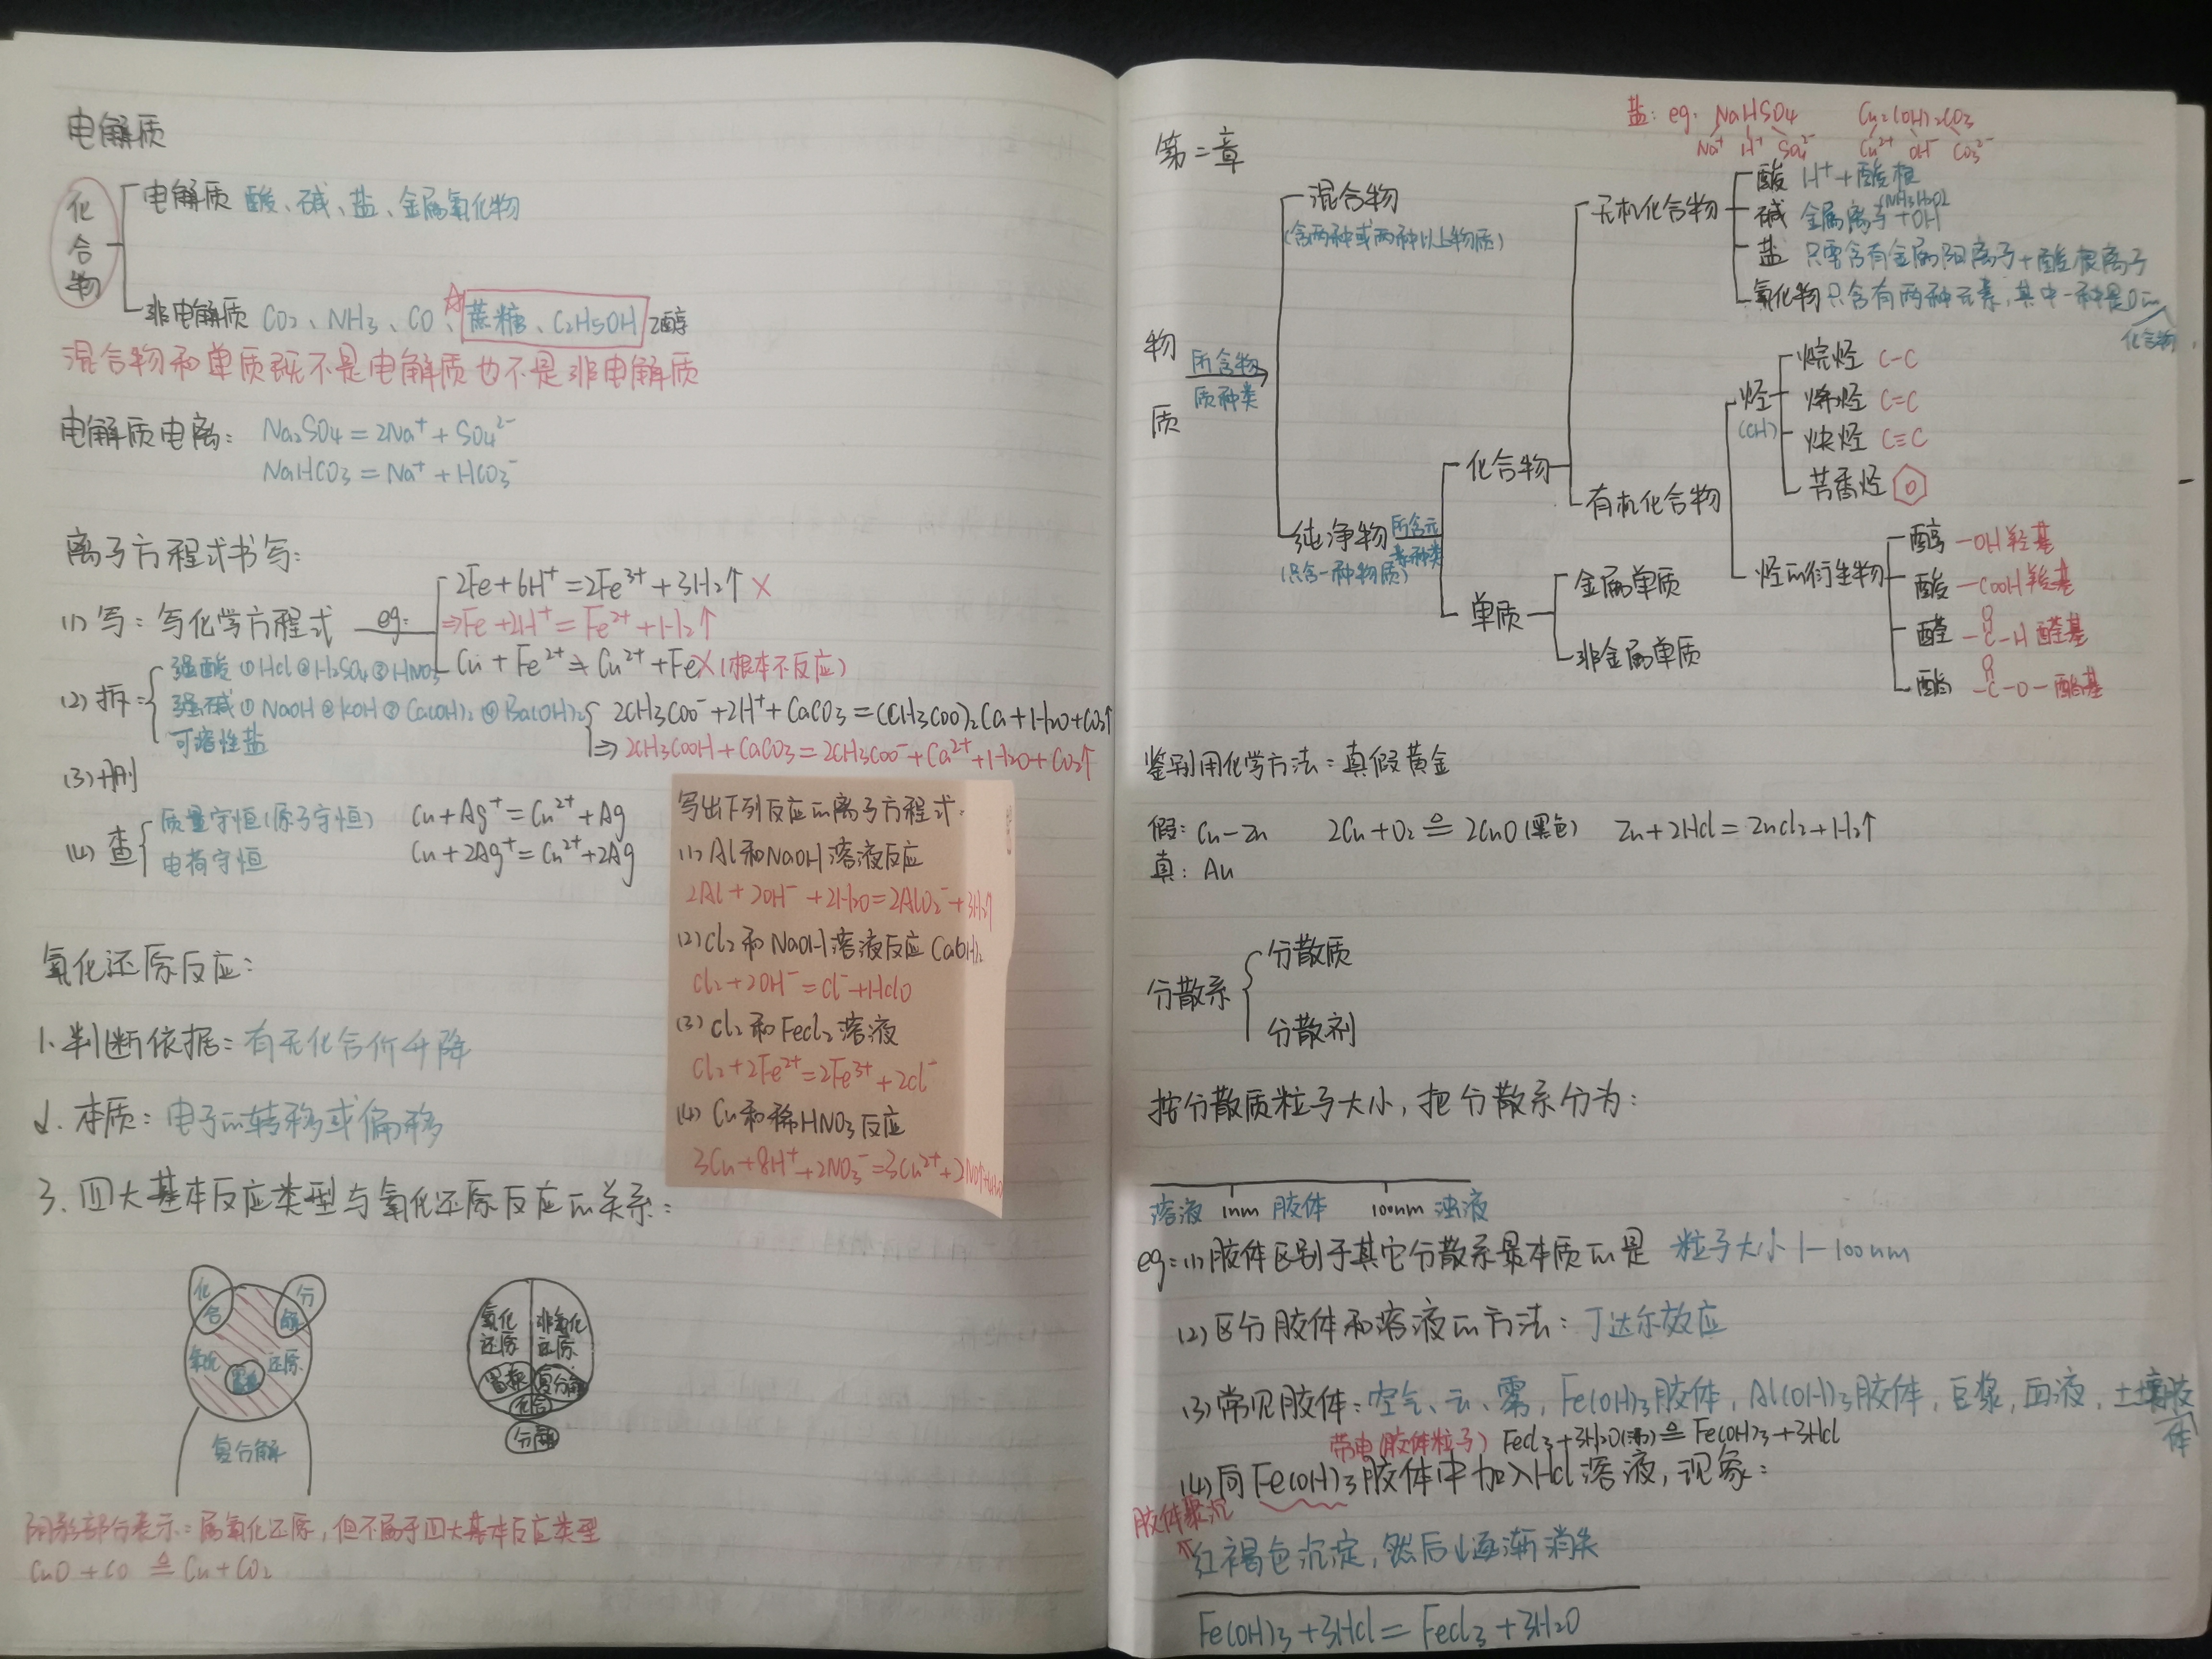 电解质
化合物
电解质 酸、碱、盐、金属氧化物
非电解质 CO2、NH3、CO、蔗糖、C2H5OH 乙醇
混合物和单质既不是电解质也不是非电解质
电解质电离: Na2SO4=2Na⁺+SO4²⁻
NaHCO3=Na⁺+HCO3⁻
离子方程式书写:
2Fe+6H⁺=2Fe³⁺+3H2↑ ×
(1) 写: 写化学方程式 eg:
⇒Fe+2H⁺=Fe²⁺+H2↑
Cu+Fe²⁺≠Cu²⁺+Fe×(根本不反应)
(2) 拆:
强酸 ①HCl②H2SO4③HNO3
强碱①NaOH②KOH③Ca(OH)2④Ba(OH)2
可溶性盐
2CH3COO⁻+2H⁺+CaCO3=(CH3COO)2Ca+H2O+CO2↑
⇒2CH3COOH+CaCO3=2CH3COO⁻+Ca²⁺+H2O+CO2↑
(3) 删
(4) 查
质量守恒(原子守恒) Cu+Ag⁺=Cu²⁺+Ag
电荷守恒 Cu+2Ag⁺=Cu²⁺+2Ag
写出下列反应的离子方程式:
(1) Al和NaOH溶液反应
2Al+2OH⁻+2H2O=2AlO2⁻+3H2↑
(2) Cl2和NaOH溶液反应 Ca(OH)2
Cl2+2OH⁻=Cl⁻+HClO
(3) Cl2和FeCl2溶液
Cl2+2Fe²⁺=2Fe³⁺+2Cl⁻
(4) Cu和稀HNO3反应
3Cu+8H⁺+2NO3⁻=3Cu²⁺+2NO↑+4H2O
氧化还原反应:
1.判断依据: 有无化合价升降
2.本质: 电子的转移或偏移
3.四大基本反应类型与氧化还原反应的关系:
化合
分解
氧化 还原
置换
复分解
氧化还原
非氧化还原
置换
复分解
化合
分解
阴影部分表示: 属氧化还原,但不属于四大基本反应类型
CuO+CO ≜ Cu+CO2
盐: eg. NaHSO4 Cu2(OH)2CO3
Na⁺ H⁺ SO4²⁻ Cu²⁺ OH⁻ CO3²⁻
第二章
物质
所含物质种类
混合物
(含两种或两种以上物质)
纯净物
(只含一种物质)
所含元素种类
化合物
无机化合物
酸 H⁺+酸根
(NH3·H2O)
碱 金属离子+OH
盐 只需含有金属阳离子+酸根离子
氧化物 只含有两种元素,其中一种是O的
化合物
有机化合物
烃
(CH)
烷烃 C-C
烯烃 C=C
炔烃 C≡C
芳香烃
烃的衍生物
醇 -OH 羟基
酸 -COOH 羧基
醛 -C-H 醛基
O
酯 -C-O- 酯基
O
单质
金属单质
非金属单质
鉴别用化学方法: 真假黄金
假: Cu-Zn 2Cu+O2 ≜ 2CuO(黑色) Zn+2HCl=ZnCl2+H2↑
真: Au
分散系
分散质
分散剂
按分散质粒子大小,把分散系分为:
溶液 1nm 胶体 100nm 浊液
eg:(1)胶体区别于其它分散系最本质的是 粒子大小1-100nm
(2)区分胶体和溶液的方法: 丁达尔效应
(3)常见胶体: 空气、云、雾,Fe(OH)3胶体,Al(OH)3胶体,豆浆,血液,土壤胶体
带电(胶体粒子) FeCl3+3H2O(沸) ≜ Fe(OH)3+3HCl
(4)向Fe(OH)3胶体中加入HCl溶液,现象:
胶体聚沉
红褐色沉淀,然后↓逐渐消失
Fe(OH)3+3HCl=FeCl3+3H2O